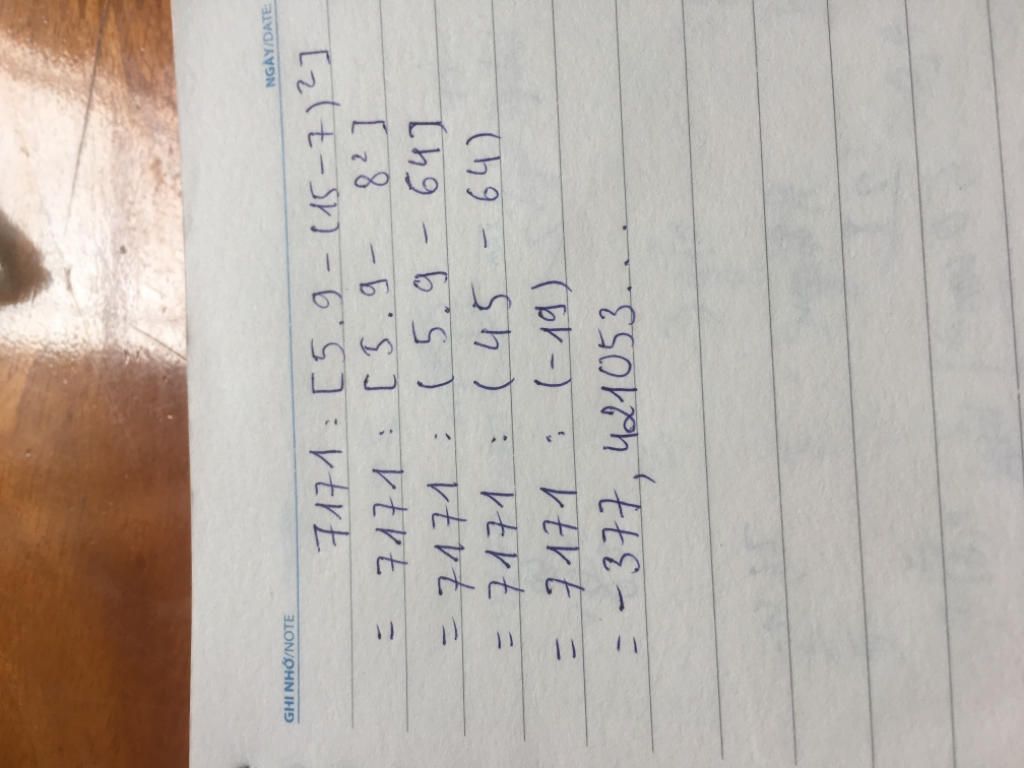 GHI NHỚ/NOTE NGÀY/DATE:
7171 : [5.9-(15-7)²]
= 7171 : [3.9- 8²]
= 7171 : (5.9 - 64]
= 7171 : (45 - 64)
= 7171 : (-19)
= -377,421053...